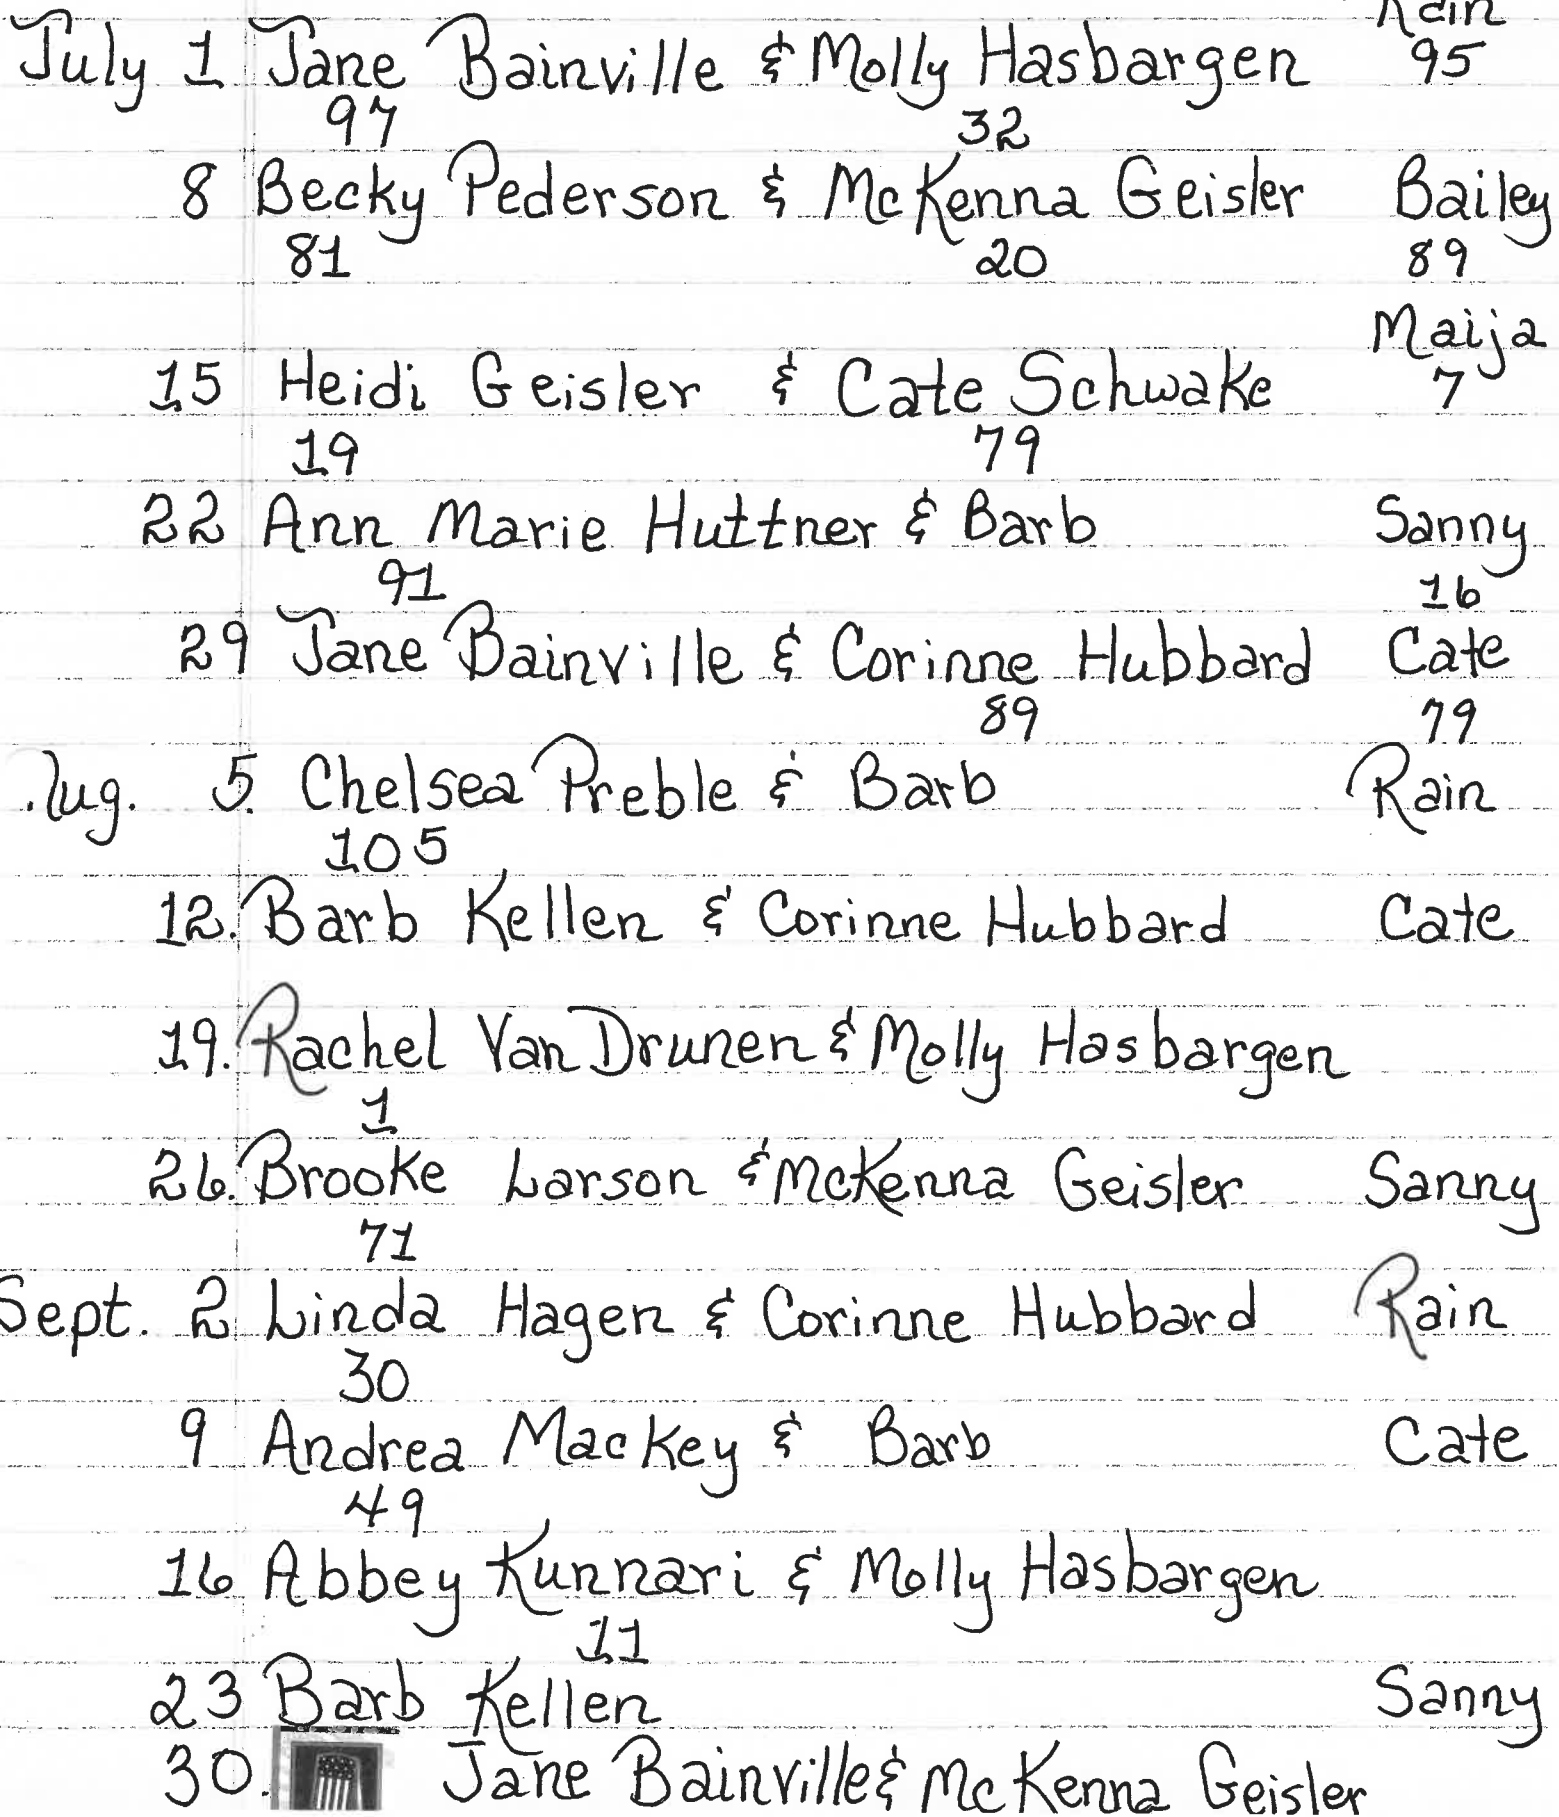 Rain
July 1 Jane Bainville & Molly Hasbargen 95
97 32
8 Becky Pederson & McKenna Geisler Bailey
81 20 89
Maija
15 Heidi Geisler & Cate Schwake 7
19 79
22 Ann Marie Huttner & Barb Sanny
91 16
29 Jane Bainville & Corinne Hubbard Cate
89 79
Aug. 5. Chelsea Preble & Barb Rain
105
12. Barb Kellen & Corinne Hubbard Cate
19. Rachel Van Drunen & Molly Hasbargen
1
26. Brooke Larson & McKenna Geisler Sanny
71
Sept. 2 Linda Hagen & Corinne Hubbard Rain
30
9 Andrea Mackey & Barb Cate
49
16 Abbey Kunnari & Molly Hasbargen
11
23 Barb Kellen Sanny
30. Jane Bainville & McKenna Geisler